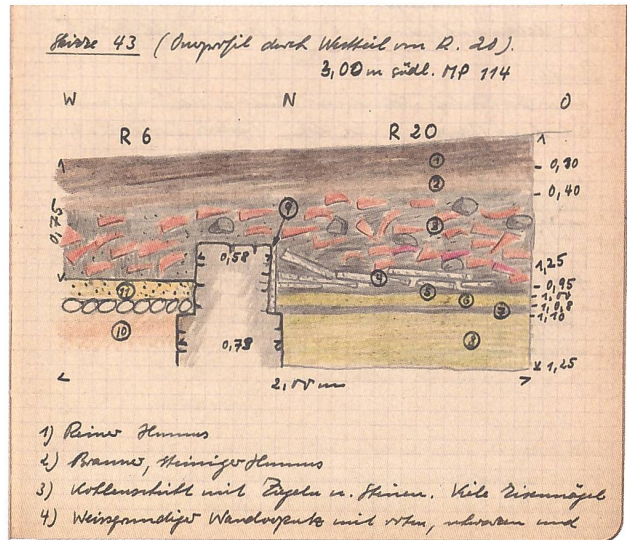 Skizze 43 (Querprofil durch Westteil von R. 20).
3,00 m südl. MP 114
W N O
R 6 R 20
1
0,30
2
0,40
9
0,75
3
0,58
1,25
4
0,95
11
5
6
1,00
1,08
7
1,10
10
0,78
8
1,25
2,00 m
1) Reiner Humus
2) Brauner, steiniger Humus
3) Kohlenschicht mit Ziegeln u. Steinen. Viele Eisennägel
4) Weissgrundiger Wandverputz mit roten, schwarzen und